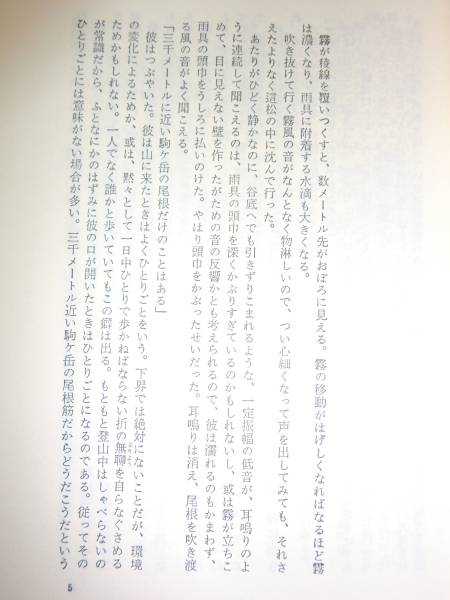 霧が稜線を覆いつくすと、数メートル先がおぼろに見える。霧の移動がはげしくなればなるほど霧
は濃くなり、雨具に附着する水滴も大きくなる。
吹き抜けて行く霧風の音がなんとなく物淋しいので、つい心細くなって声を出してみても、それさ
えたよりなく這松の中に沈んで行った。
あたりがひどく静かなのに、谷底へでも引きずりこまれるような、一定振幅の低音が、耳鳴りのよ
うに連続して聞こえるのは、雨具の頭巾を深くかぶりすぎているのかもしれないし、或は霧が立ちこ
めて、目に見えない壁を作ったがための音の反響かとも考えられるので、彼は濡れるのもかまわず、
雨具の頭巾をうしろに払いのけた。やはり頭巾をかぶったせいだった。耳鳴りは消え、尾根を吹き渡
る風の音がよく聞こえる。
「三千メートルに近い駒ケ岳の尾根だけのことはある」
彼はつぶやいた。彼は山に来たときはよくひとりごとをいう。下界では絶対にないことだが、環境
の変化によるためか、或は、黙々として一日中ひとりで歩かねばならない折の無聊を自らなぐさめる
ぶりょう
ためかもしれない。一人でなく誰かと歩いていてもこの癖は出る。もともと登山中はしゃべらないの
が常識だから、ふとなにかのはずみに彼の口が開いたときはひとりごとになるのである。従ってその
ひとりごとには意味がない場合が多い。三千メートル近い駒ケ岳の尾根筋だからどうだこうだという
5